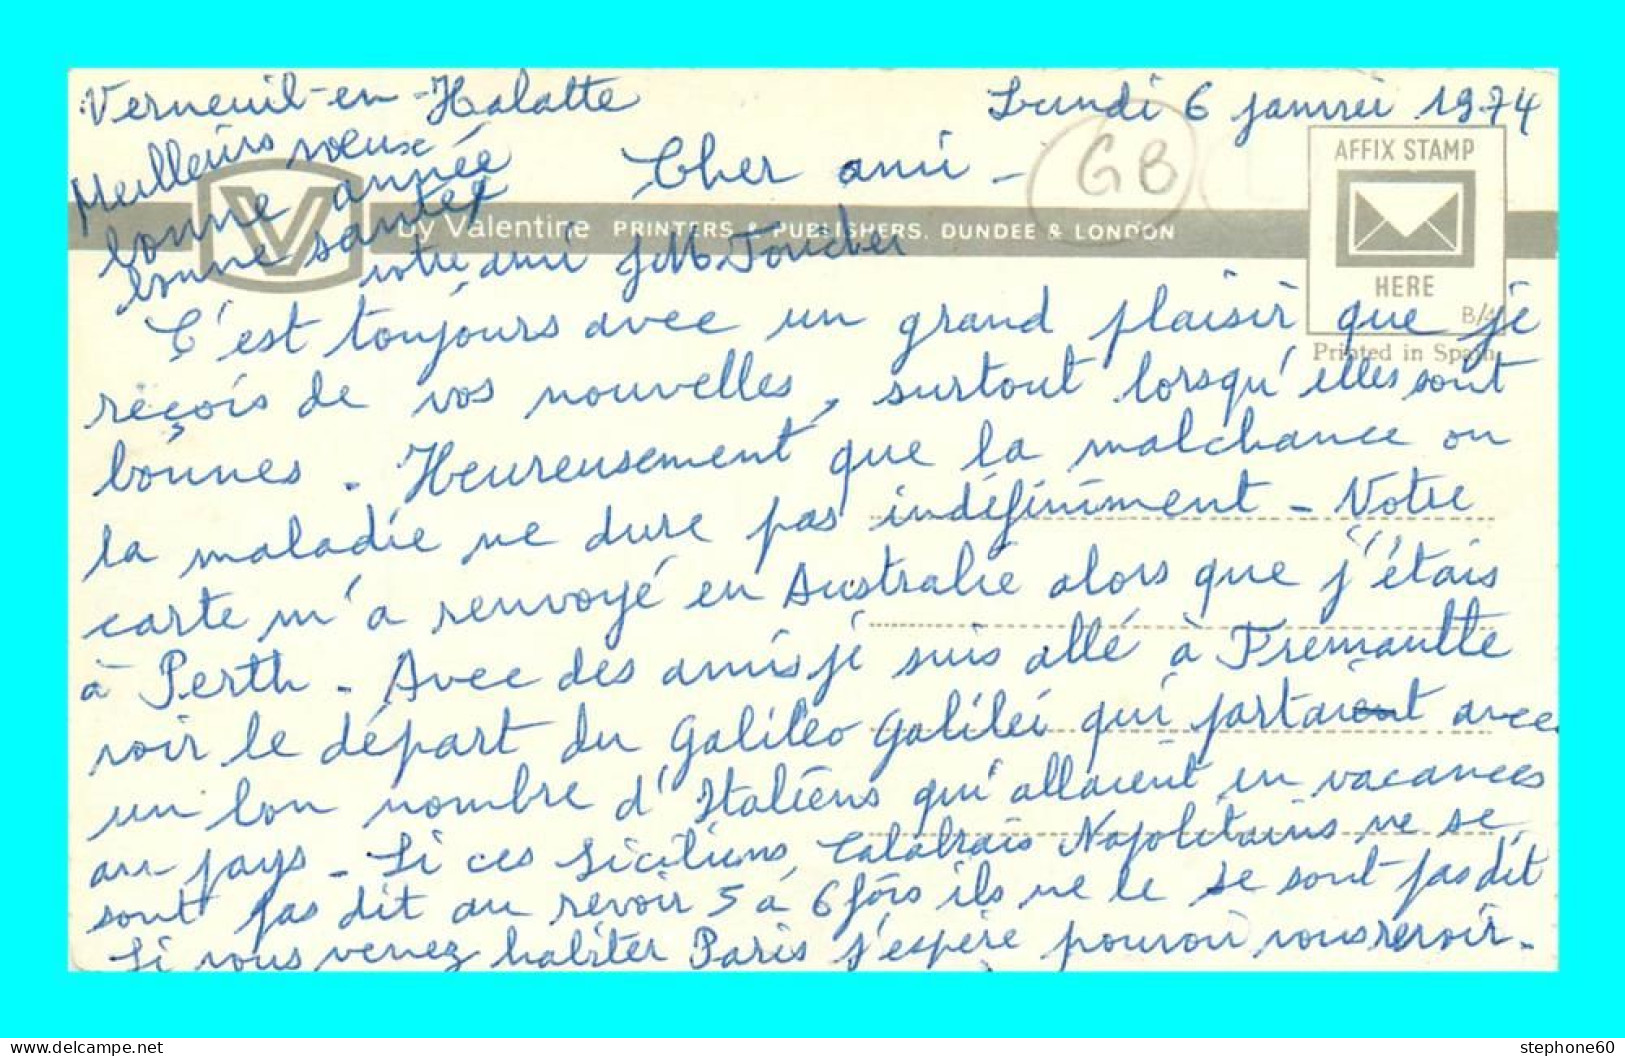 Verneuil-en-Halatte
Lundi 6 janvier 1974
Meilleurs voeux
bonne année
bonne santé
Cher ami -
GB
AFFIX STAMP
HERE
B/4
Printed in Spain
V
by Valentine PRINTERS & PUBLISHERS. DUNDEE & LONDON
votre ami JM
C'est toujours avec un grand plaisir que je
reçois de vos nouvelles, surtout lorsqu'elles sont
bonnes. Heureusement que la malchance ou
la maladie ne dure pas indéfiniment - Votre
carte m'a renvoyé en Australie alors que j'étais
à Perth - Avec des amis je suis allé à Fremantle
voir le départ du Galiléo Galiléi qui partait avec
un bon nombre d'Italiens qui allaient en vacances
au pays - Si ces Siciliens, Calabrais Napolitains ne se
sont pas dit au revoir 5 à 6 fois ils ne le se sont pas dit
Si vous venez habiter Paris j'espère pouvoir vous revoir -
stephone60